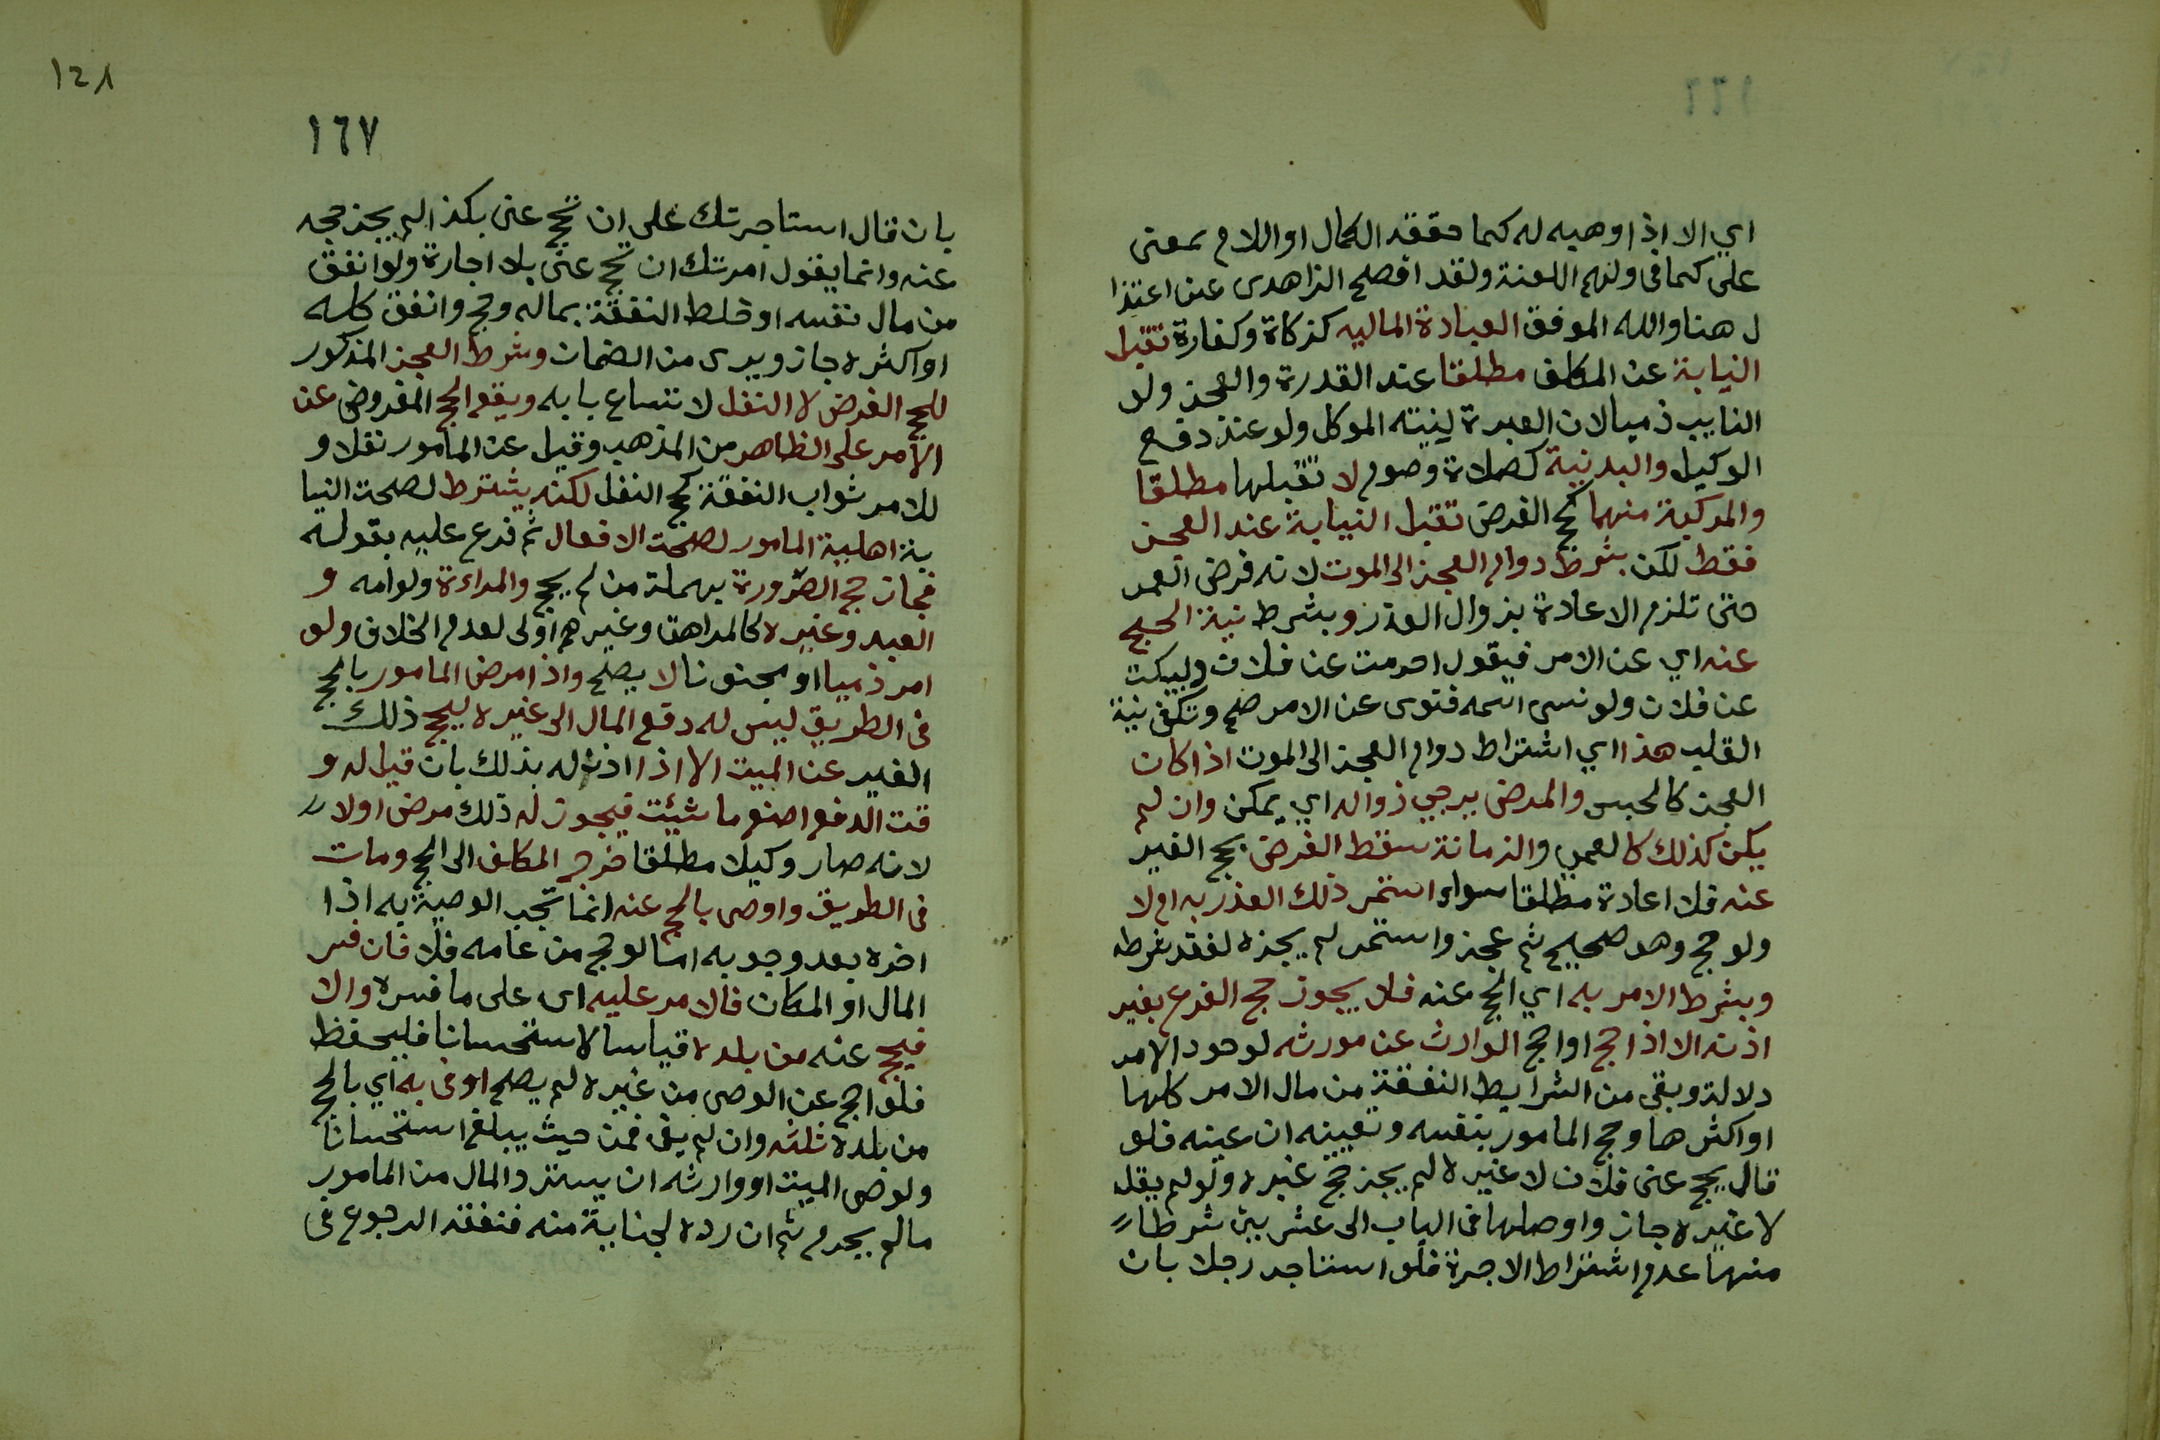 ١٦٦
اي الا اذا وهبه له كما حققه الكمال او اللام بمعنى
على كما في ولهم اللعنة ولقد افصح الزاهدى عن اعتذا
ل هنا والله الموفق العبادة الماليه كزكاة وكفارة تقبل
النيابة عن المكلف مطلقا عند القدرة والعجز ولو
النايب ذميا لان العبرة لنيته الموكل ولو عند دفع
الوكيل والبدنية كصلاة وصوم لا تقبلها مطلقا
والمركبة منهما كحج الفرض تقبل النيابة عند العجز
فقط لكن بشرط دوام العجز الى الموت لانه فرض العمر
حتى تلزم الاعادة بزوال العذر وبشرط نية الحج
عنه اي عن الامر فيقول احرمت عن فلان ولبيكت
عن فلان ولو نسى اسمه فنوى عن الامر صح وتكفى نية
القلب هذا اي اشتراط دوام العجز الى الموت اذا كان
العجز كالحبس والمرض يرجى زواله اي يمكن وان لم
يكن كذلك كالعمى والزمانة سقط الفرض بحج الغير
عنه فلا اعادة مطلقا سواء استمر ذلك العذر به ام لا
ولو حج وهو صحيح ثم عجز واستمر لم يجزه لفقد شرطه
وبشرط الامر به اي الحج عنه فلا يجوز حج الفرع بغير
اذنه الا اذا حج او احج الوارث عن مورثه لوجود الامر
دلالة وبقى من الشرايط النفقة من مال الامر كلها
او اكثرها وحج المامور بنفسه وتعيينه ان عينه فلو
قال يحج عنى فلان لا غيره لم يجز حج غيره ولو لم يقل
لا غيره جاز واوصلها في الباب الى عشرين شرطا
منها عدم اشتراط الاجرة فلو استاجر رجلا بان
١٤٨
١٦٧
بان قال استاجرتك على ان تحج عنى بكذا لم يجز حجه
عنه وانما يقول امرتك ان تحج عنى بلا اجارة ولو انفق
من مال نفسه او خلط النفقة بماله وحج وانفق كله
او اكثره جاز وبرى من الضمان وشرط العجز المذكور
للحج الفرض لا النفل لاتساع بابه ويقع الحج المفروض عن
الآمر على الظاهر من المذهب وقيل عن المامور نفلا و
للامر ثواب النفقة كحج النفل لكنه يشترط لصحت النيا
بة اهلية المامور لصحت الافعال ثم فرع عليه بقوله
فجاز حج الصرورة بمهملة من لم يحج والمراءة ولو امه و
العبد وغيره كالمراهق وغيرهم اولى لعدم الخلاف ولو
امر ذميا او مجنونا لا يصح واذا مرض المامور بالحج
فى الطريق ليس له دفع المال الى غيره ليحج ذلك
الغير عن الميت الا اذا اذن له بذلك بان قيل له و
قت الدفع اصنع ما شيئت فيجوز له ذلك مرض اولا
لانه صار وكيلا مطلقا خرج المكلف الى الحج ومات
فى الطريق واوصى بالحج عنه انما تجب الوصية به اذا
اخره بعد وجوبه اما لو حج من عامه فلا فان فسر
المال او المكان فالامر عليه اى على ما فسره والا
فيحج عنه من بلده قياسا لا استحسانا فليحفظ
فلو احج عن الوصى من غيره لم يصح اوفى به اي بالحج
من بلده ثلثه وان لم يف فمن حيث يبلغ استحسانا
ولوصى الميت او وارثه ان يسترد المال من المامور
ما لم يحرم ثم ان رده لجناية منه فنفقه الرجوع فى